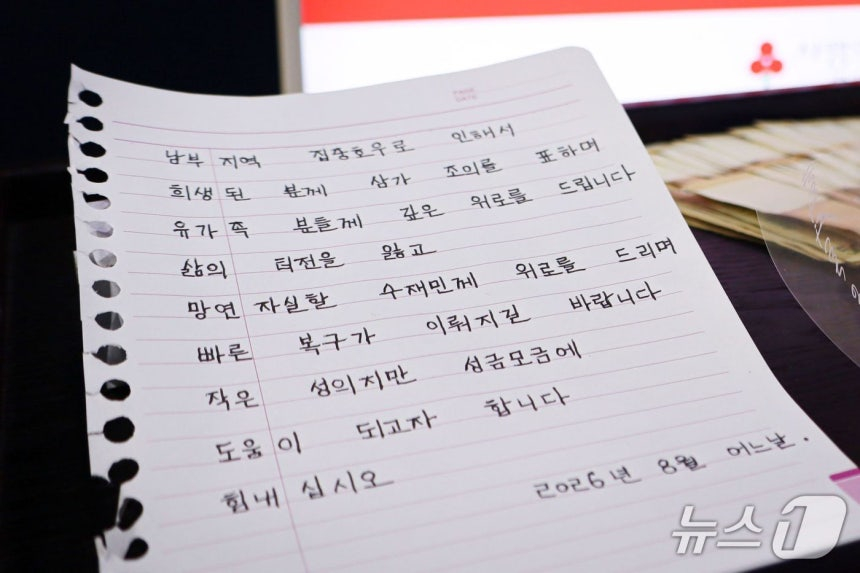 PAGE
DATE
남부 지역 집중호우로 인해서
희생 된 분께 삼가 조의를 표하며
유가족 분들께 깊은 위로를 드립니다
삶의 터전을 잃고
망연 자실할 수재민께 위로를 드리며
빠른 복구가 이뤄지길 바랍니다
작은 성의지만 성금모금에
도움이 되고자 합니다
힘내 십시오 2026년 8월 어느날.
뉴스1